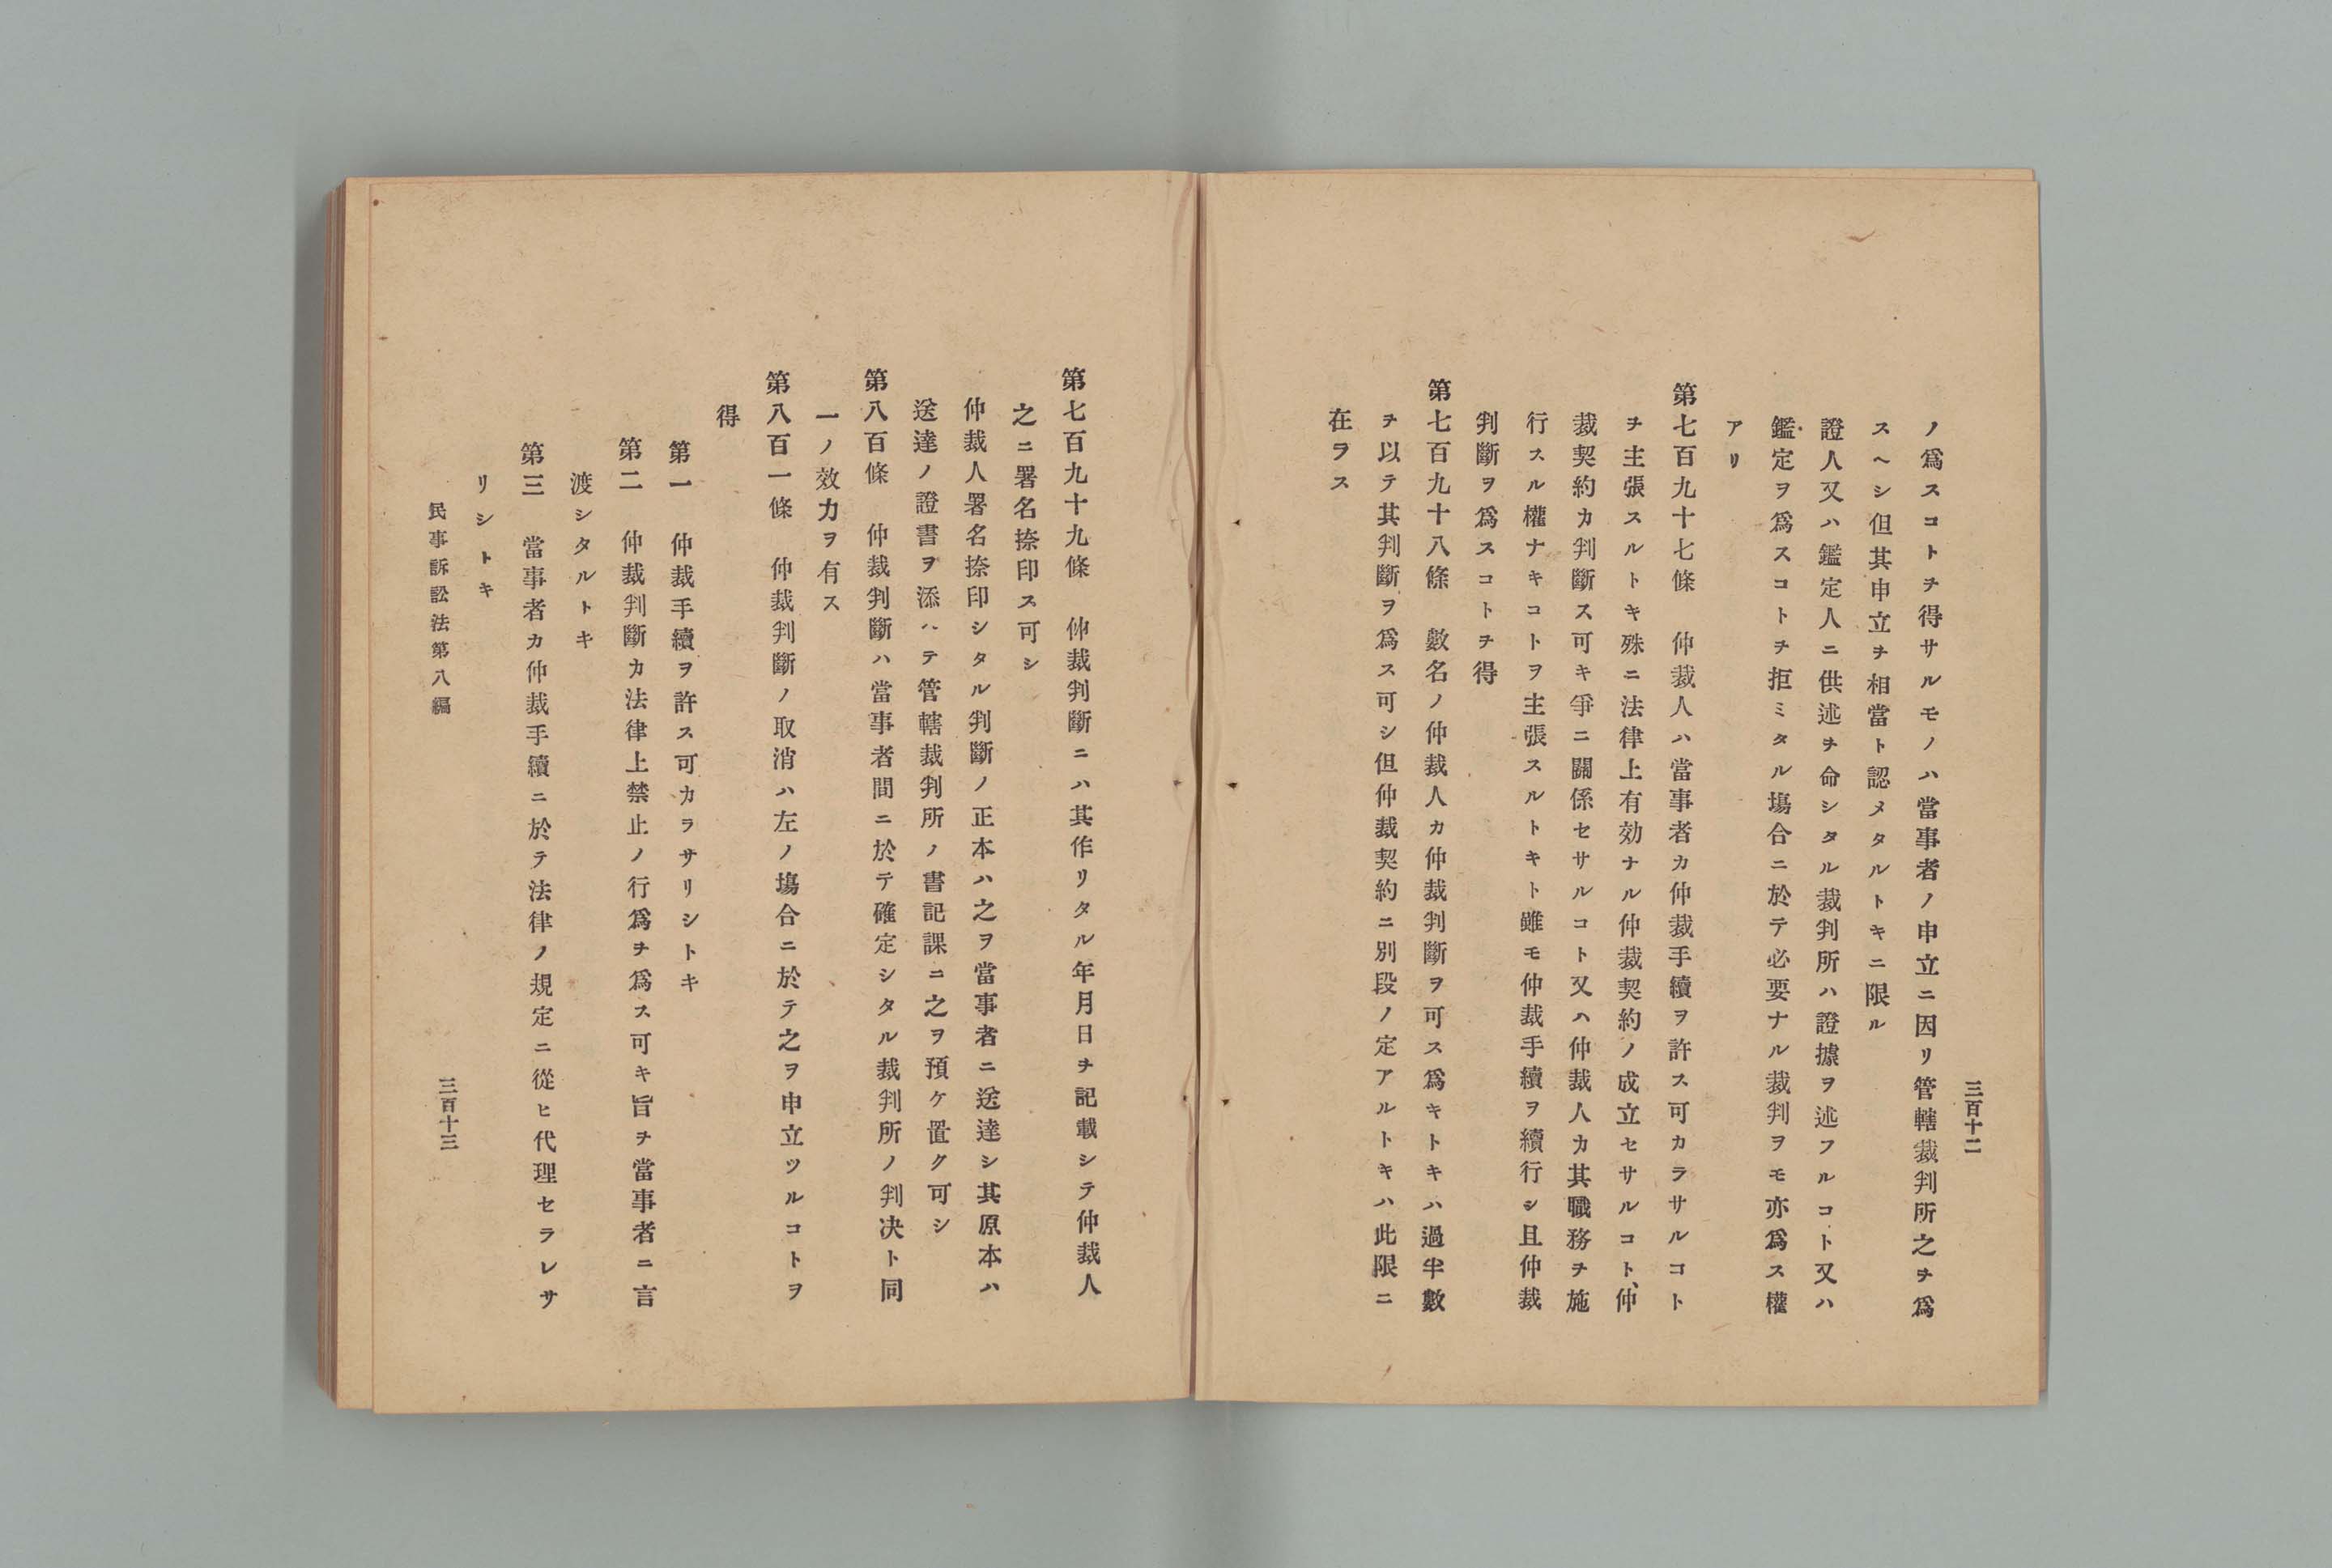 三百十二
ノ爲スコトヲ得サルモノハ當事者ノ申立ニ因リ管轄裁判所之ヲ爲
スヘシ但其申立ヲ相當ト認メタルトキニ限ル
證人又ハ鑑定人ニ供述ヲ命シタル裁判所ハ證據ヲ述フルコト又ハ
鑑定ヲ爲スコトヲ拒ミタル塲合ニ於テ必要ナル裁判ヲモ亦爲ス權
アリ
第七百九十七條　仲裁人ハ當事者カ仲裁手續ヲ許ス可カラサルコト
ヲ主張スルトキ殊ニ法律上有効ナル仲裁契約ノ成立セサルコト、仲
裁契約カ判斷ス可キ爭ニ關係セサルコト又ハ仲裁人カ其職務ヲ施
行スル權ナキコトヲ主張スルトキト雖モ仲裁手續ヲ續行シ且仲裁
判斷ヲ爲スコトヲ得
第七百九十八條　數名ノ仲裁人カ仲裁判斷ヲ可ス爲キトキハ過半數
ヲ以テ其判斷ヲ爲ス可シ但仲裁契約ニ別段ノ定アルトキハ此限ニ
在ヲス
第七百九十九條　仲裁判斷ニハ其作リタル年月日ヲ記載シテ仲裁人
之ニ署名捺印ス可シ
仲裁人署名捺印シタル判斷ノ正本ハ之ヲ當事者ニ送達シ其原本ハ
送達ノ證書ヲ添ヘテ管轄裁判所ノ書記課ニ之ヲ預ケ置ク可シ
第八百條　仲裁判斷ハ當事者間ニ於テ確定シタル裁判所ノ判决ト同
一ノ效力ヲ有ス
第八百一條　仲裁判斷ノ取消ハ左ノ塲合ニ於テ之ヲ申立ツルコトヲ
得
第一　仲裁手續ヲ許ス可カラサリシトキ
第二　仲裁判斷カ法律上禁止ノ行爲ヲ爲ス可キ旨ヲ當事者ニ言
渡シタルトキ
第三　當事者カ仲裁手續ニ於テ法律ノ規定ニ從ヒ代理セラレサ
リシトキ
民事訴訟法第八編
三百十三